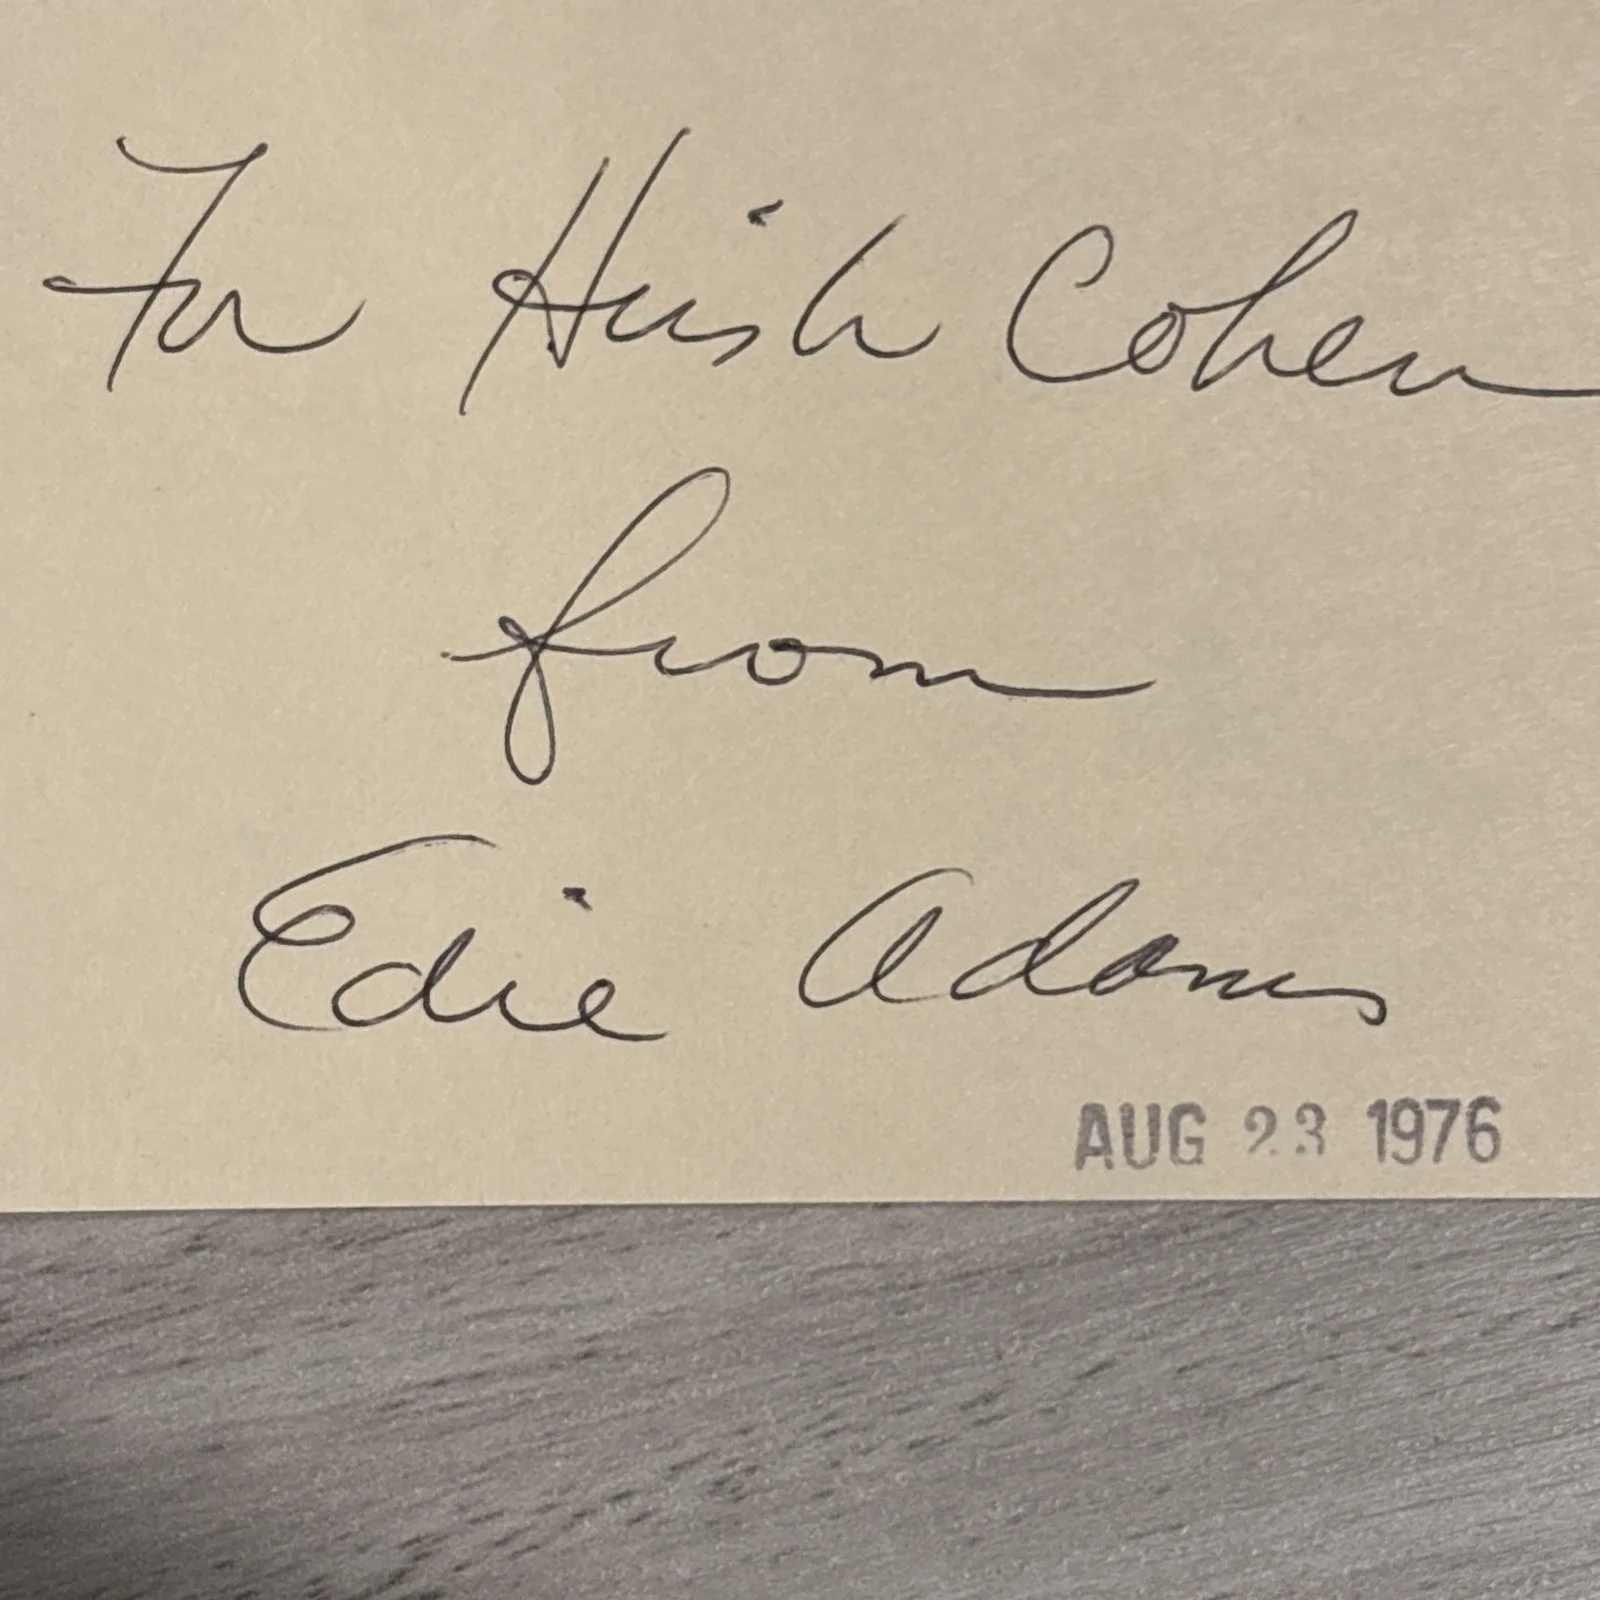 For Hirsh Cohen
from
Edie Adams
AUG 23 1976